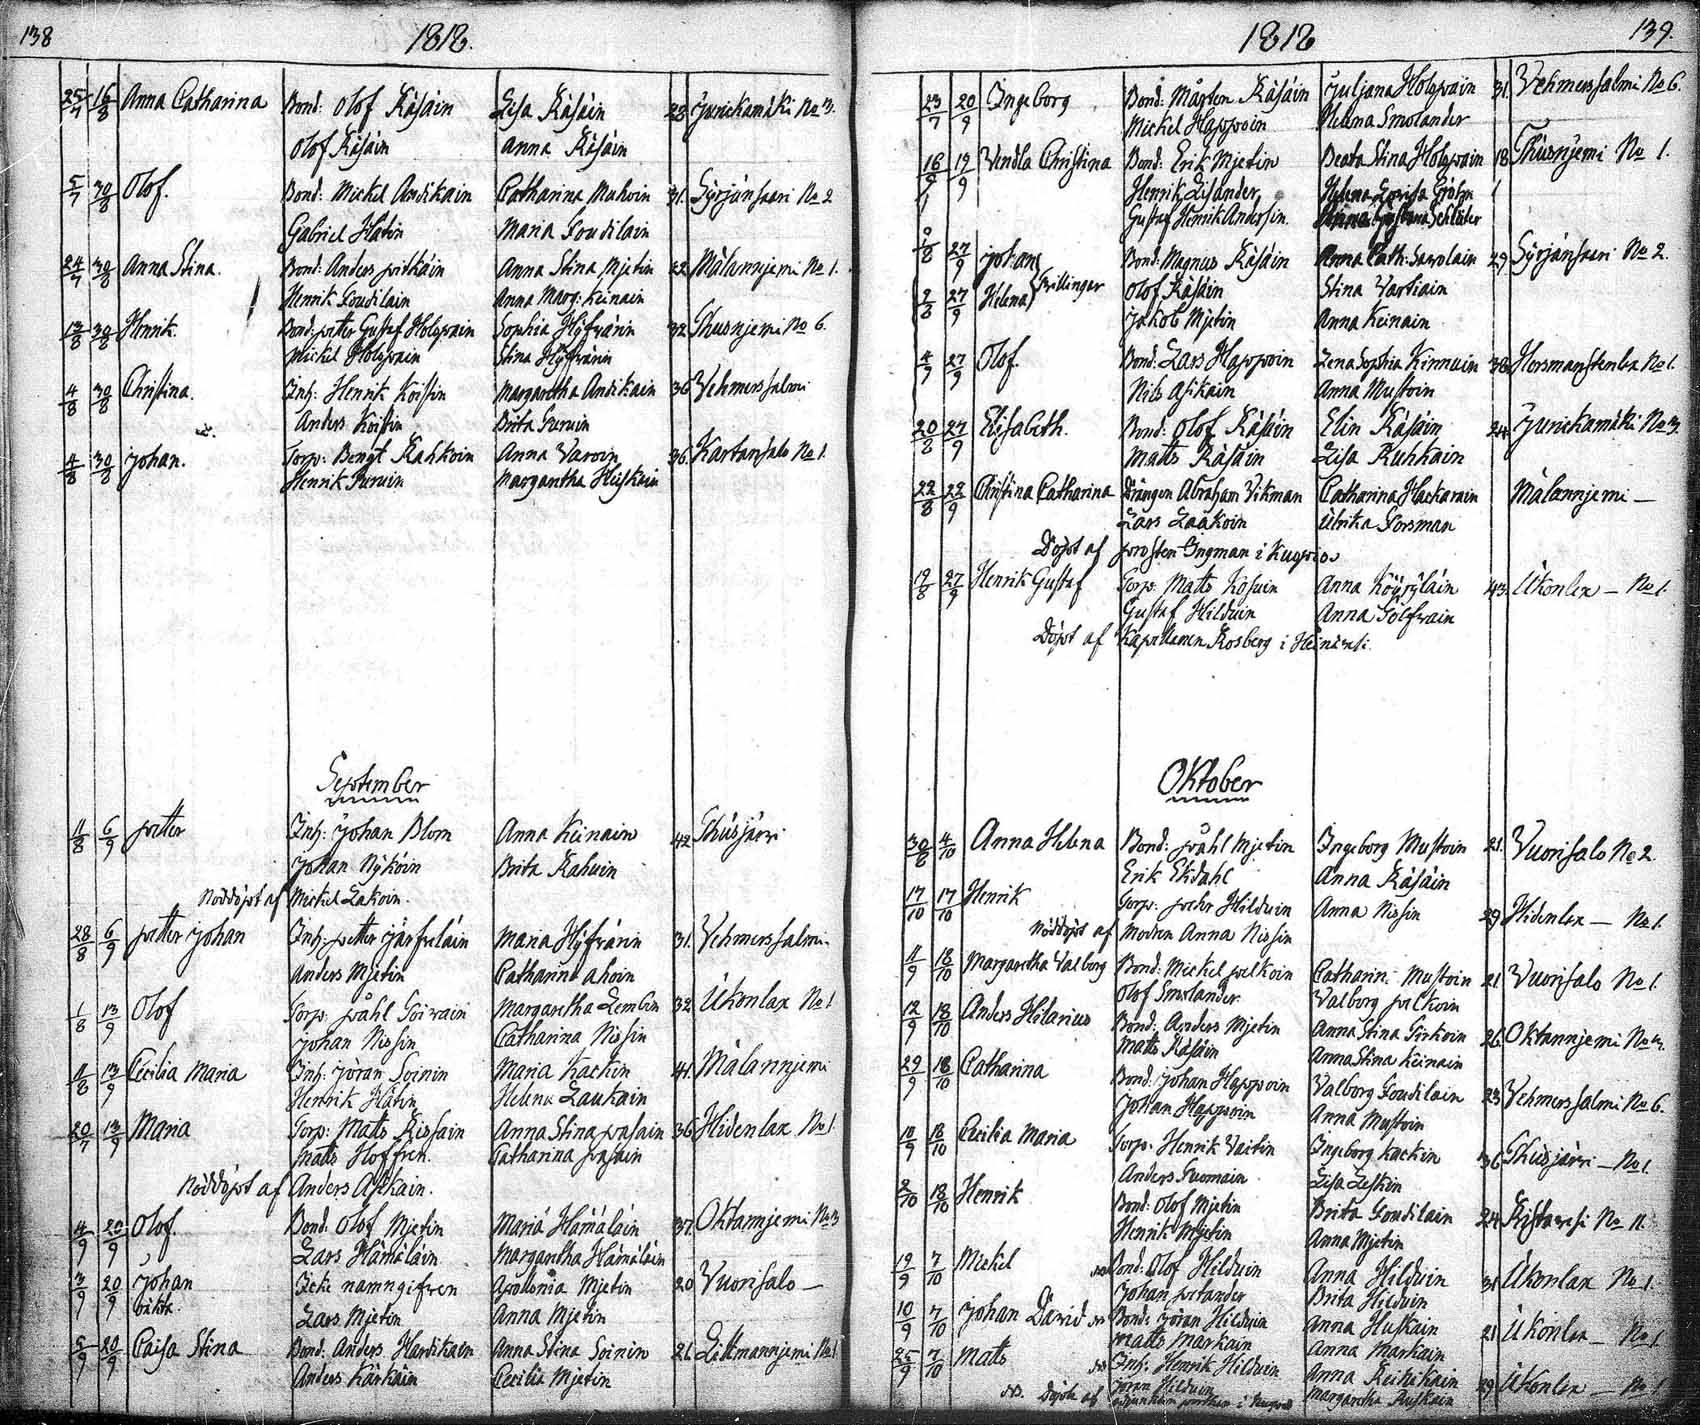 138
1818.
25/7 16/8 Anna Catharina Bond: Olof Räsäin Lisa Räsäin 28 Jurickamäki No 3.
Olof Räsäin Anna Räsäin
5/7 30/8 Olof. Bond: Mickel Andikain Catharina Muhoin 31. Syrjänsaari No 2
Gabriel Hätin Maria Soudilain
24/7 30/8 Anna Stina. Bond: Anders Pitkäin Anna Stina Mjetin 22 Målannjemi No 1.
Henrik Soudilain Anna Marg: Keinain
13/8 30/8 Henrik. Bond: Petter Gustaf Holopain Sophia Hyfvärin 32 Thusnjemi No 6.
Mickel Holopain Stina Hyfvärin
4/8 30/8 Christina. Inh: Henrik Koistin Margaretha Andikain 36 Vehmerssalmi
Anders Koistin Brita Turuin
4/8 30/8 Johan. Torp: Bengt Kahkoin Anna Varoin 36. Kartansalo No 1.
Henrik Turuin Margaretha Heiskain
September
11/8 6/9 Petter Inh: Johan Blom Anna Keinain 42 Thusjärvi
Johan Nyköin Brita Kahuin
Nöddöpt af Mickel Lakoin.
28/8 6/9 Petter Johan Inh: Petter Järfveläin Maria Hyfvärin 31. Vehmerssalm.
Anders Mjetin Catharina Ahoin
1/8 13/9 Olof Torp: Påhl Toivain Margaretha Lembin 32 Ukonlax No 1
Johan Nissin Catharina Nissin
11/8 13/9 Cecilia Maria Inh: Jöran Soinin Maria Kackin 41. Målannjemi
Henrik Hätin Helena Laukain
20/7 13/9 Maria Torp: Matts Rissain Anna Stina Pasain 36 Hidenlax No 1
Matts Hoffren. Catharina Pasain
Nöddöpt af Anders Asikain.
4/9 20/9 Olof. Bond. Olof Mjetin Maria Hämäläin 37. Oktannjemi No 3
Lars Hämäläin Margaretha Hämäläin
3/9 20/9 Johan Icke namngifven Apolonia Mjetin 20 Vuorisalo —
oäkta. Lars Mjetin Anna Mjetin
5/9 20/9 Caisa Stina Bond: Anders Hardikain Anna Stina Soinin 26 Littmannjemi No 1
Anders Kärkäin Cecilia Mjetin
1818
139.
23/7 20/9 Ingeborg Bond: Mårten Räsäin Juljana Holopain 31. Vehmerssalmi No 6.
Mickel Happoin Helena Smolander
16/9 19/9 Vendla Christina Bond: Erik Mjetin Beata Stina Holopain 18 Thusnjemi No 1.
Henrik Lisander Helena Lovisa
Gustaf Henrik Andersin.
9/8 27/9 Johan Bond: Magnus Räsäin Anna Cath: Savolain 29 Syrjänsaari No 2.
Tvillingar Olof Räsäin Stina Vartiain
9/8 27/9 Helena Jakob Mjetin Anna Keinain
4/9 27/9 Olof. Bond: Lars Happoin Lena Sophia Kinnuin 38 Horsmanstembra No 1.
Nils Asikain Anna Mustoin
20/8 27/9 Elisabeth. Bond: Olof Räsäin Elin Räsäin 24 Jurickamäki No 3.
Matts Räsäin Lisa Ruhkain
22/8 22/9 Christina Catharina Drängen Abraham Vikman Catharina Hackarain Målannjemi —
Lars Laakoin Ulrika Forsman
Döpt af prosten Ingman i Kuopio
19/8 27/9 Henrik Gustaf Torp: Matts Kosuin Anna Köyryläin 43. Ukonlax — No 1.
Gustaf Hilduin Anna Tölfvain
Döpt af Kapellanen Rosberg i Heinävesi.
Oktober
30/8 4/10 Anna Helena Bond: Påhl Mjetin Ingeborg Mustoin 21. Vuorisalo No 2.
Erik Ekdahl Anna Räsäin
17/10 17/10 Henrik Torp: Peter Hilduin Anna Nissin 29 Hidenlax — No 1.
Nöddöpt af Modren Anna Nissin
11/9 18/10 Margaretha Valborg Bond: Mickel Pelkoin Catharin: Mustoin 21 Vuorisalo No 1.
Olof Smolander. Valborg Pelkoin
12/9 18/10 Anders Hilarius Bond: Anders Mjetin Anna Stina Tirkoin 26. Oktannjemi No
Matts Räsäin Anna Stina Keinain
29/9 18/10 Catharina Bond: Johan Happoin Valborg Soudilain 23 Vehmerssalmi No 6.
Johan Happoin Anna Mustoin
18/9 18/10 Cecilia Maria Torp: Henrik Vartin Ingeborg Kackin 36 Thusjärvi — No 1.
Anders Tuomain Lisa Leskin
2/10 18/10 Henrik Bond: Olof Mjetin Brita Soudilain 24. Ristavesi No 11.
Henrik Mjetin Anna Mjetin
19/9 7/10 Mickel Bond: Olof Hilduin Anna Hilduin 31 Ukonlax No 1.
Johan Petander Brita Hilduin
10/9 7/10 Johan David Bond: Jöran Hilduin Anna Huskain 21 Ukonlax — No 1.
Matts Markain Anna Markain
25/9 7/10 Matts Inh: Henrik Hilduin Anna Reikikain 29 Ukonlax — No 1.
Jöran Hilduin Margaretha Ruskain
NB. Döpte af